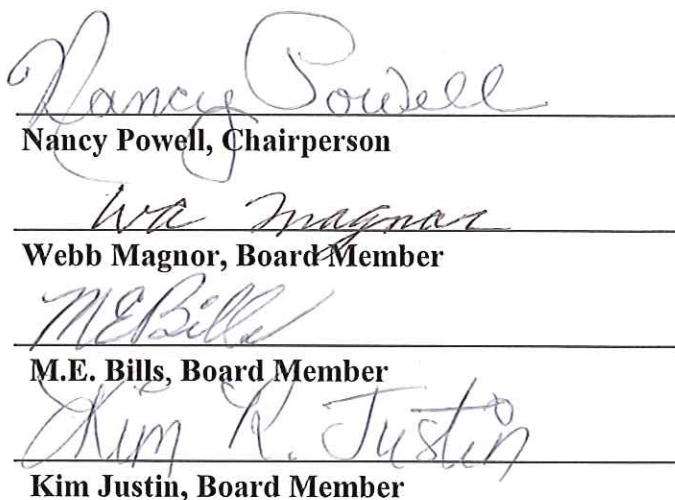 Nancy Powell
Nancy Powell, Chairperson
WA Magnor
Webb Magnor, Board Member
M E Bills
M.E. Bills, Board Member
Kim R. Justin
Kim Justin, Board Member